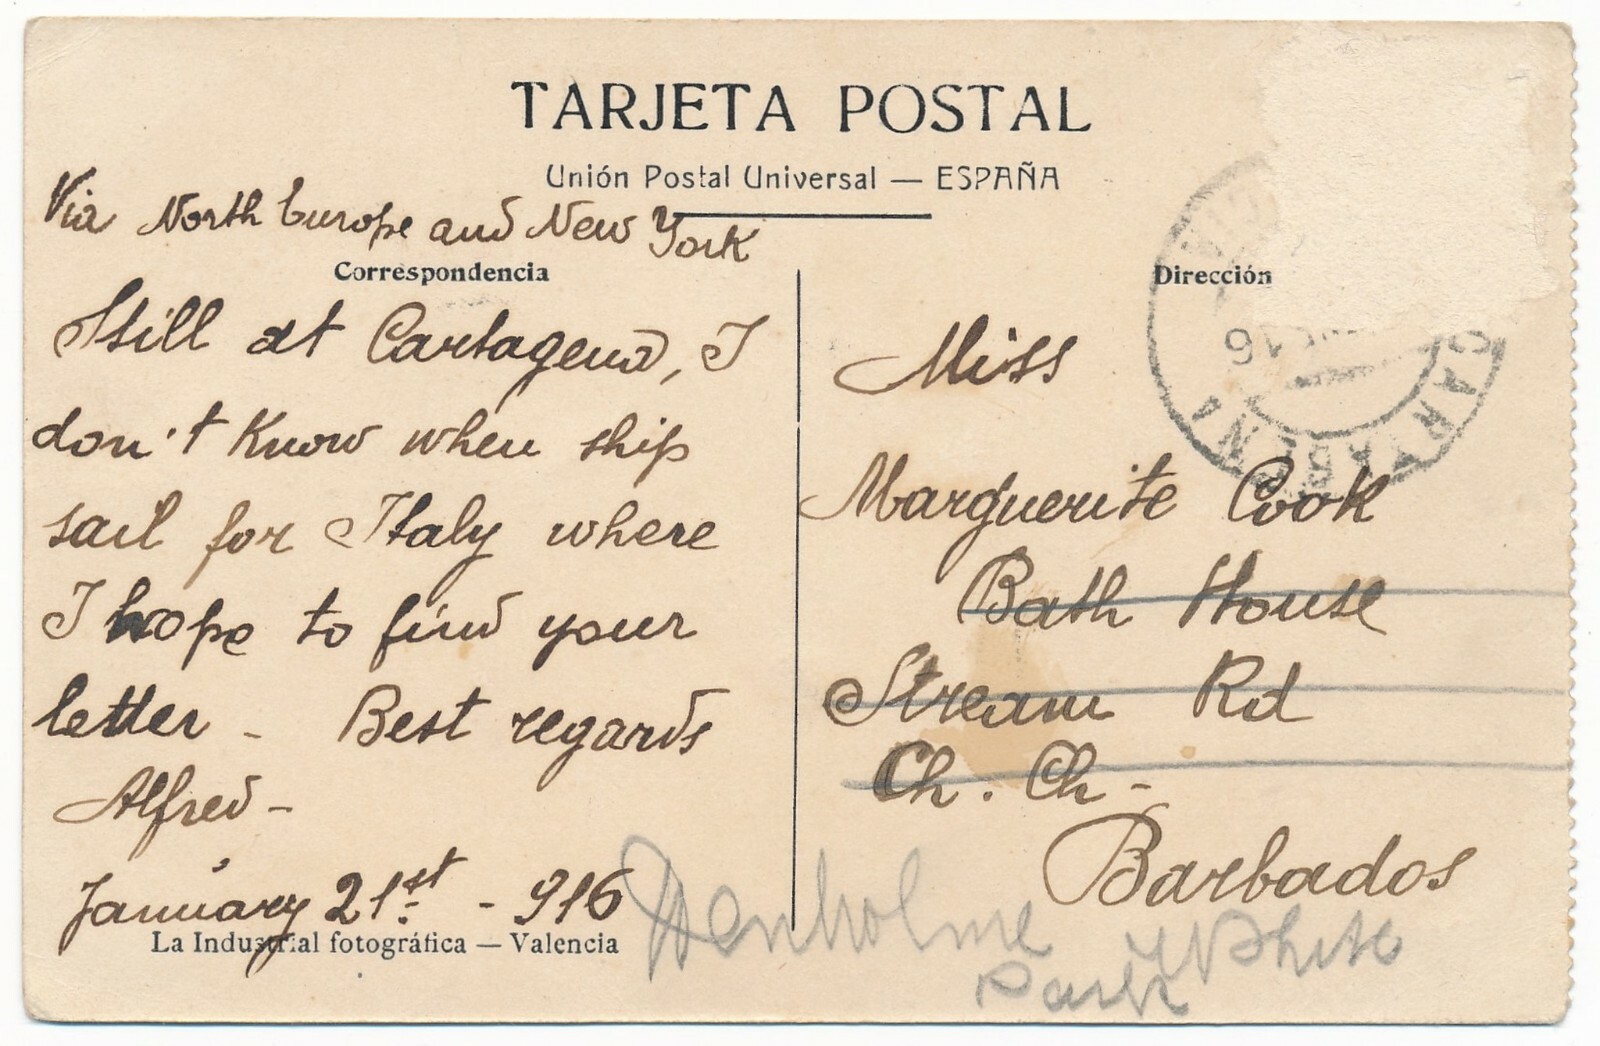 TARJETA POSTAL
Unión Postal Universal — ESPAÑA
Via North Europe and New York
Correspondencia
Still at Cartagena, I
don't Know when ship
sail for Italy where
I hope to find your
letter - Best regards
Alfred -
January 21st - 916
La Industrial fotográfica — Valencia
Dirección
CARTAGENA
16
Miss
Marguerite Cook
Bath House
Stream Rd
Ch. Ch -
Barbados
Denholme
White
Park